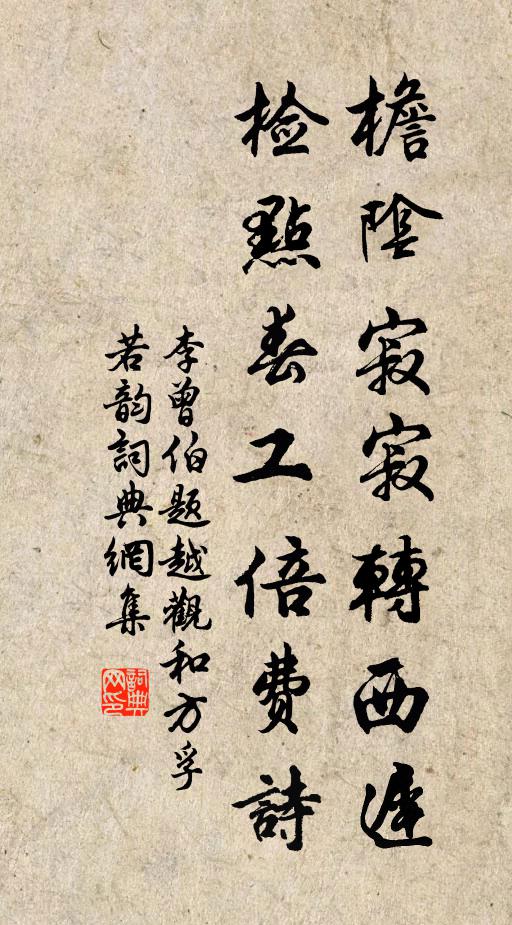 檐陰寂寂轉西遲
檢點春工倍費詩
李曾伯题越觀和方孚
若韵詞典網集
詞典网印